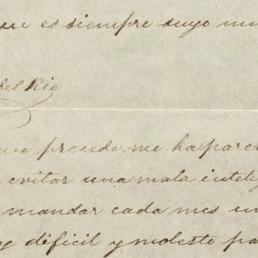 es siempre suyo
del Rio
precede me ha
evitar una mala
mandar cada mes un
dificil y molesto pa